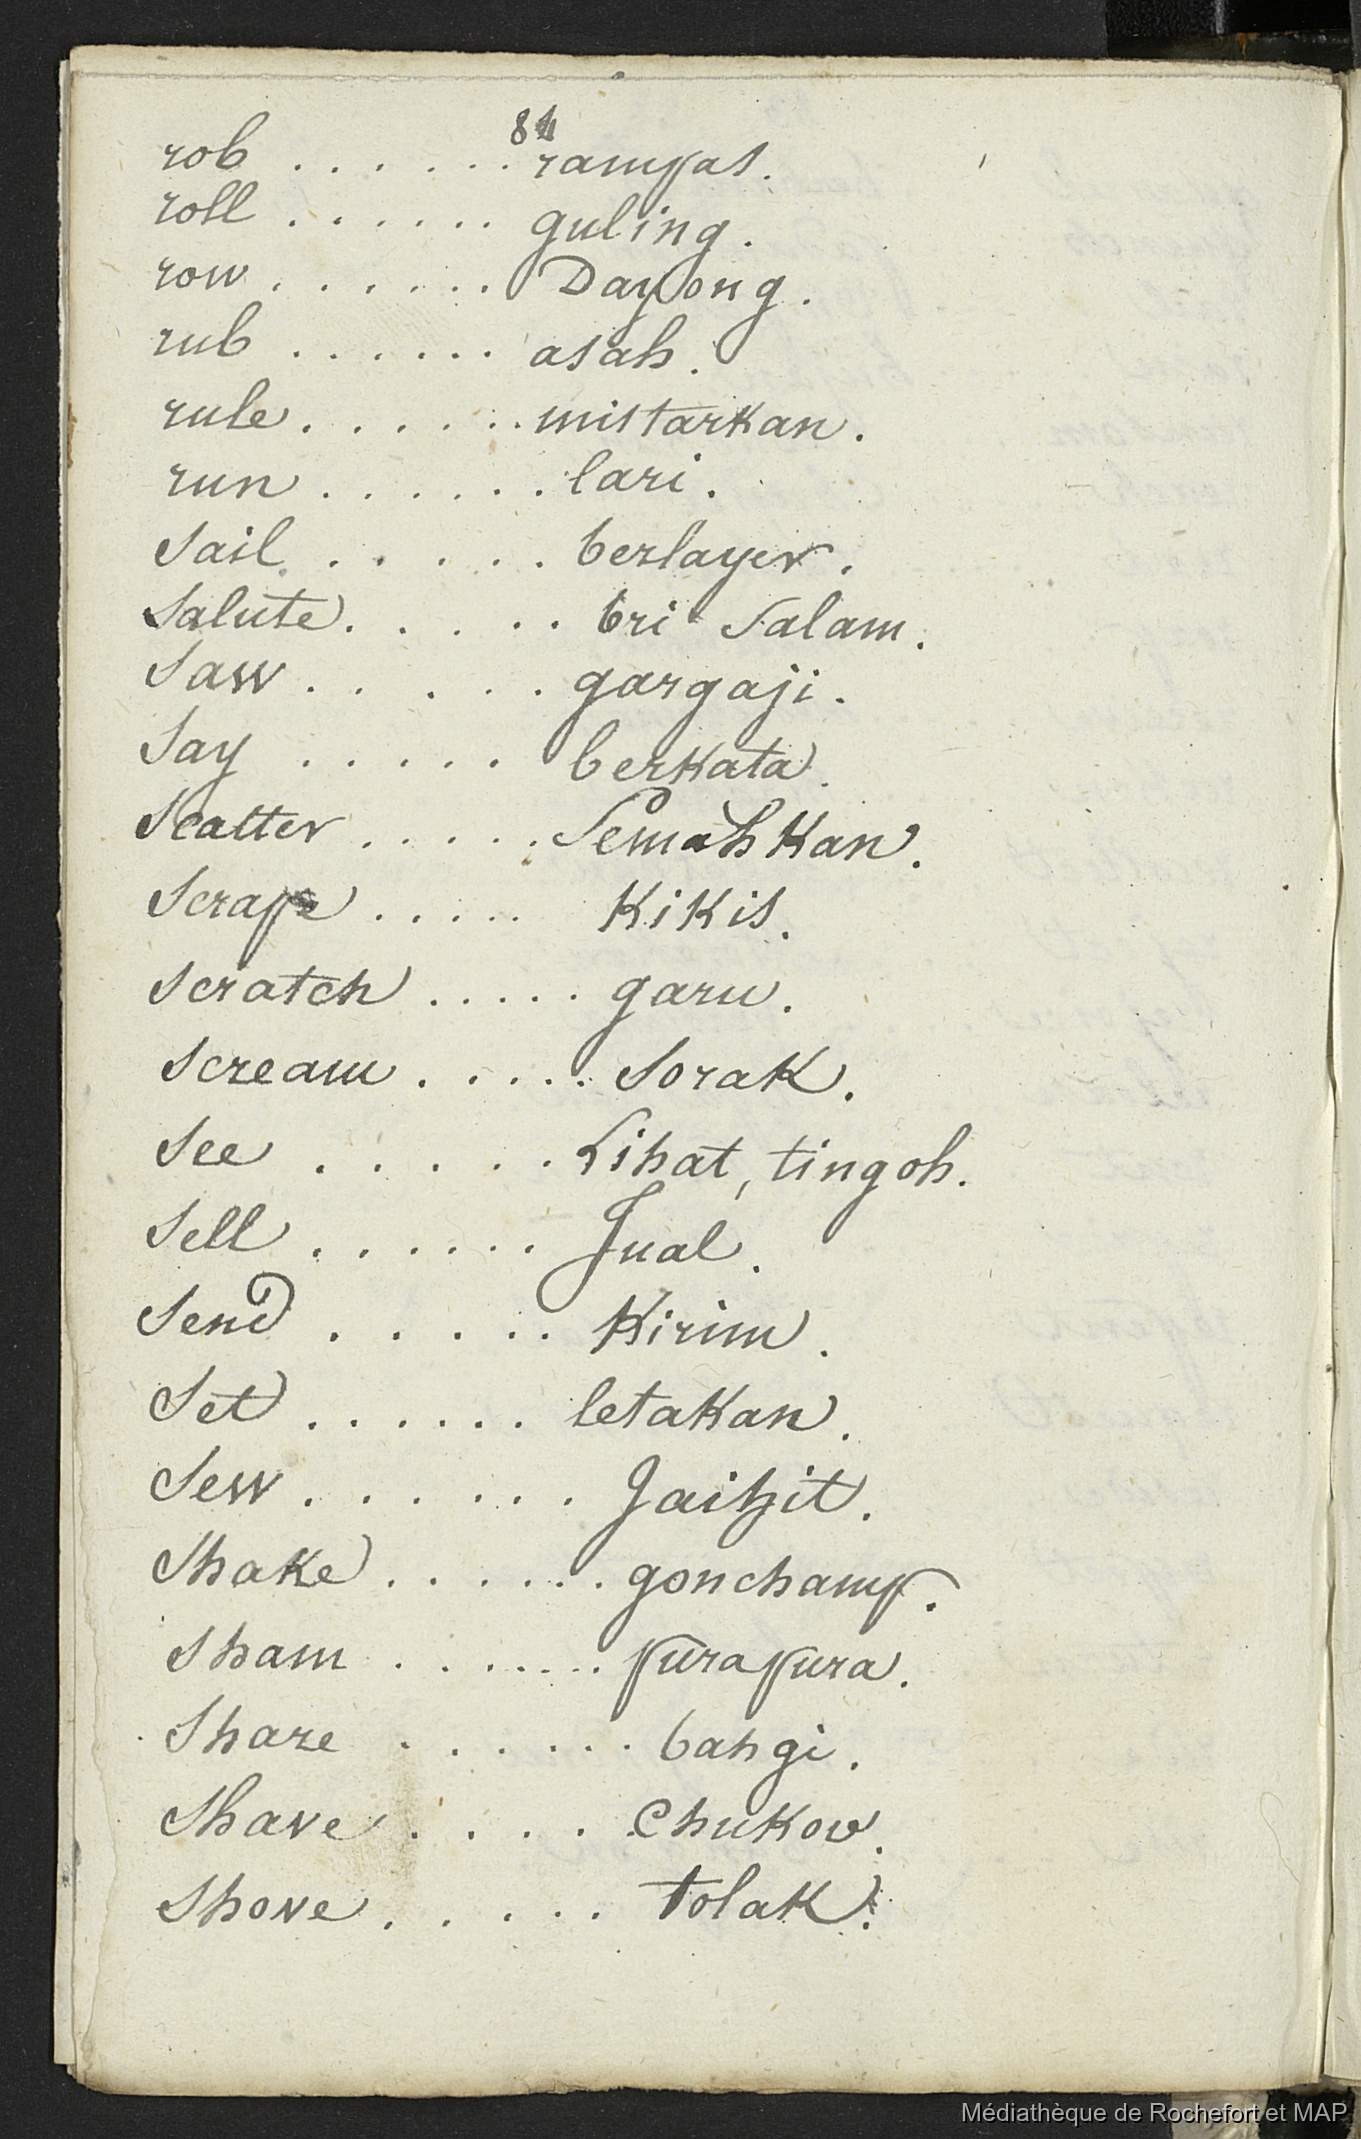 84
rob . . . . . . rampas.
roll . . . . . . guling.
row . . . . . . Dayong.
rub . . . . . . asah.
rule . . . . . . mistarkan.
run . . . . . . lari.
Sail . . . . . berlayer.
Salute . . . . . bri Salam.
Saw . . . . . gargaji.
Say . . . . . berkata.
Scatter . . . . . Semahkan.
Scrape . . . . . Kikis.
Scratch . . . . . garu.
Scream . . . . . Sorak.
See . . . . . Lihat, tingoh.
Sell . . . . . . Jual.
Send . . . . . Kirim.
Set . . . . . . letakan.
Sew . . . . . . Jaihit.
Shake . . . . . . gonchamp.
Sham . . . . . . . purapura.
Share . . . . . . bahgi.
Shave . . . . . Chukow.
Shove . . . . . tolak.
Médiathèque de Rochefort et MAP